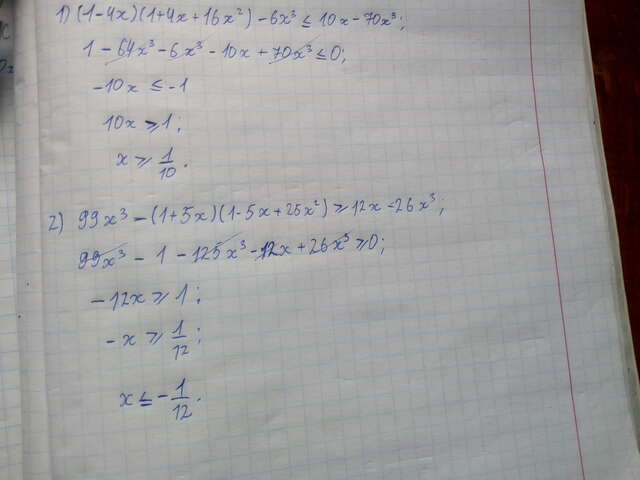 1) (1-4x)(1+4x+16x²)-6x³ ≤ 10x-70x³;
1-64x³-6x³-10x+70x³ ≤ 0;
-10x ≤ -1
10x ≥ 1;
x ≥ 1/10.
2) 99x³-(1+5x)(1-5x+25x²) ≥ 12x-26x³;
99x³-1-125x³-12x+26x³ ≥ 0;
-12x ≥ 1;
-x ≥ 1/12;
x ≤ -1/12.